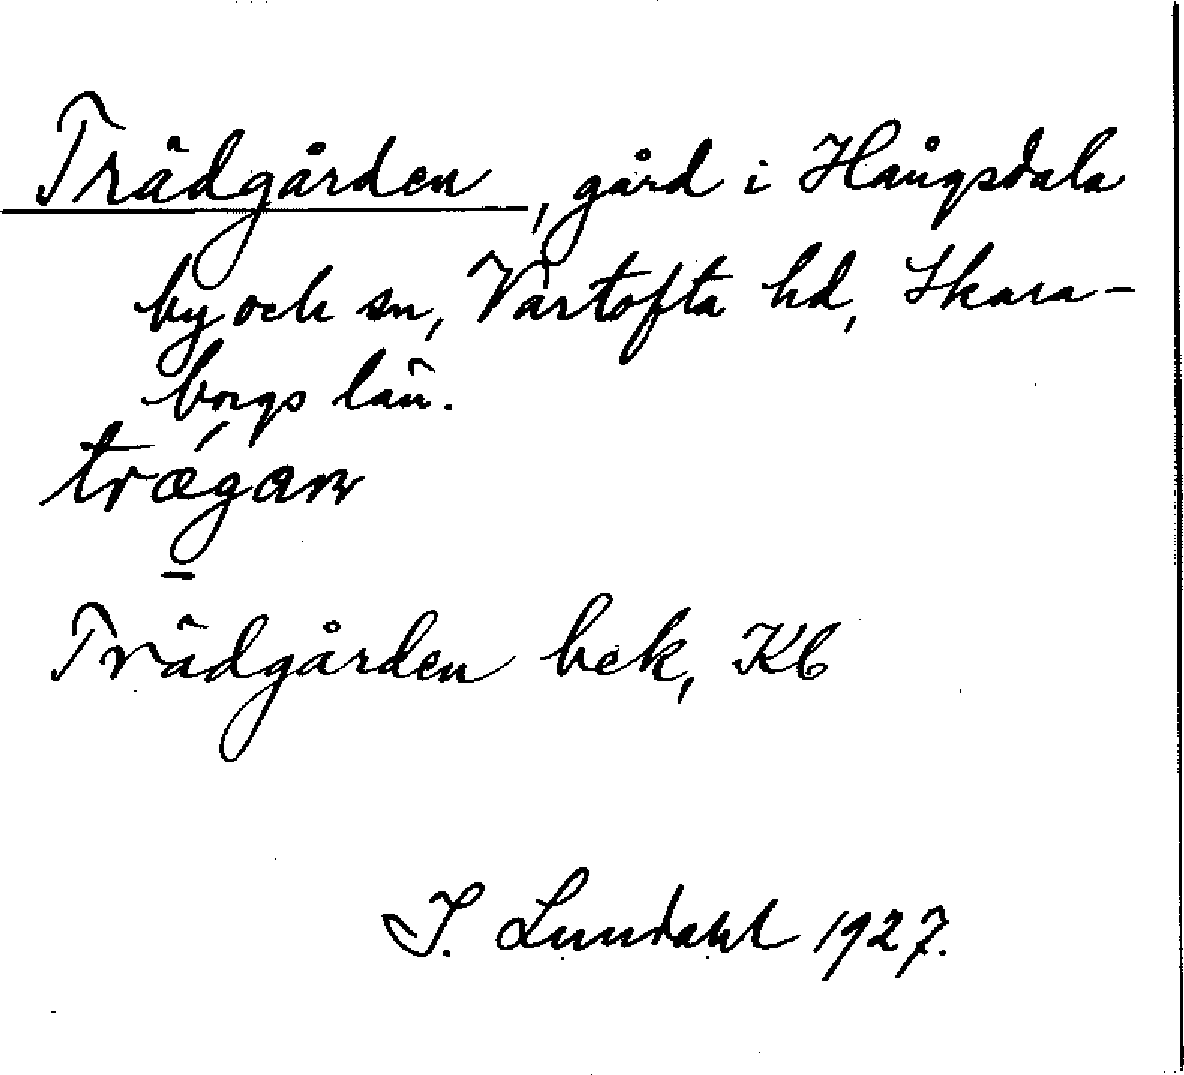 Trädgården, gård i Hångsdala
by och sn, Vartofta hd, Skara-
borgs län.
trǽgaṉ
Trädgården bek, Kb
I. Lundahl 1927.